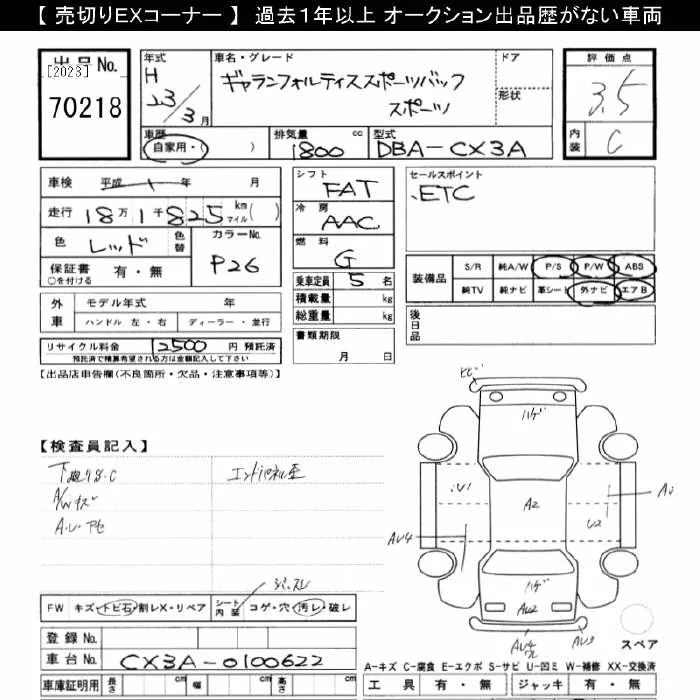 【 売切りEXコーナー 】 過去１年以上 オークション出品歴がない車両
出品No.
[2023]
70218
年式
H
23/3月
車名・グレード
ギャランフォルティススポーツバック
スポーツ
ドア
形状
評価点
3.5
内装
C
車歴
自家用・( )
排気量 cc
1800
型式
DBA-CX3A
車検 平成 1 年 月
走行 18万1千825 km マイル( )
色 レッド 色替
カラーNo.
P26
保証書 有・無
○を付ける
外車 モデル年式 年
ハンドル 左・右 ディーラー・並行
リサイクル料金 12500 円 預託済
預託済で精算希望される方は金額記入して下さい
シフト
FAT
冷房
AAC
燃料
G
乗車定員 5 名
積載量 kg
総重量 kg
書類期限
月 日
セールスポイント
.ETC
装備品
S/R 純A/W P/S P/W ABS
純TV 純ナビ 革シート 外ナビ エアB
後日品
【出品店申告欄(不良箇所・欠品・注意事項等)】
【検査員記入】
下廻りS・C
A/Wキズ
A・U・アセ
エンドパネル歪
ヒビ
ハゲ
U1
A2
U2
AU4
ハゲ
AU2
AU3
スペア
FW キズ・トビ石・割レX・リペア
シート内装 コゲ・穴・汚レ・破レ
登録No.
車台No. CX3A-0100622
車庫証明用 長さ cm 幅 cm 高さ cm
A-キズ C-腐食 E-エクボ S-サビ U-凹ミ W-補修 XX-交換済
工具 有・無 ジャッキ 有・無